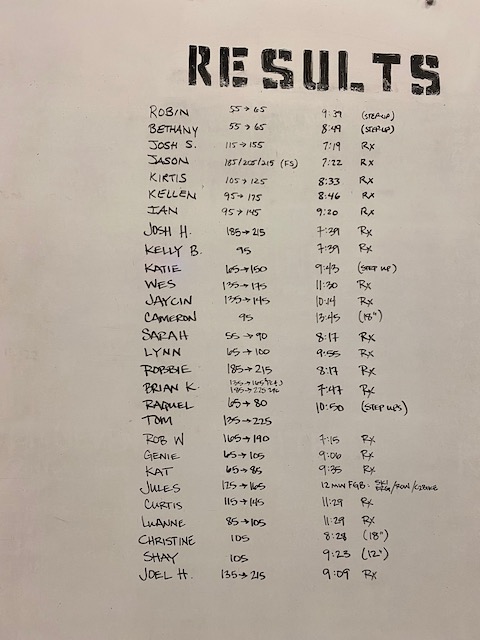 RESULTS
ROBIN 55→65 9:39 (STEP UP)
BETHANY 55→65 8:49 (STEP UP)
JOSH S. 115→155 7:19 Rx
JASON 185/205/215 (FS) 7:22 Rx
KIRTIS 105→125 8:33 Rx
KELLEN 95→175 8:46 Rx
IAN 95→145 9:20 Rx
JOSH H. 185→215 7:39 Rx
KELLY B. 95 7:39 Rx
KATIE 165→150 9:43 (STEP UP)
WES 135→175 11:30 Rx
JAYCIN 135→145 10:14 Rx
CAMERON 95 13:45 (18")
SARAH 55→90 8:17 Rx
LYNN 65→100 9:55 Rx
ROBBIE 185→215 8:17 Rx
BRIAN K. 7:47 Rx
RAQUEL 65→80 10:50 (STEP UPS)
TOM 135→225
ROB W 165→190 7:15 Rx
GENIE 65→105 9:06 Rx
KAT 65→85 9:35 Rx
JULES 125→165 12 MIN FGB - SKI ERG/ROW/C2BIKE
CURTIS 115→145 11:29 Rx
LUANNE 85→105 11:29 Rx
CHRISTINE 105 8:28 (18")
SHAY 105 9:23 (12")
JOEL H. 135→215 9:09 Rx